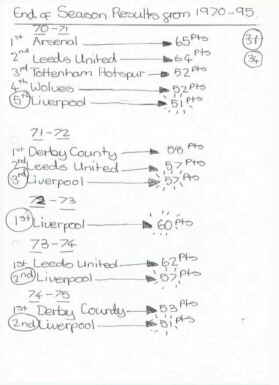 End of Season Results from 1970-95
70-71
1st Arsenal 65 Pts
2nd Leeds United 64 Pts
3rd Tottenham Hotspur 52 Pts
4th Wolves 52 Pts
5th Liverpool 51 Pts
71-72
1st Derby County 58 Pts
2nd Leeds United 57 Pts
3rd Liverpool 57 Pts
72-73
1st Liverpool 60 Pts
73-74
1st Leeds United 62 Pts
2nd Liverpool 57 Pts
74-75
1st Derby County 53 Pts
2nd Liverpool 51 Pts